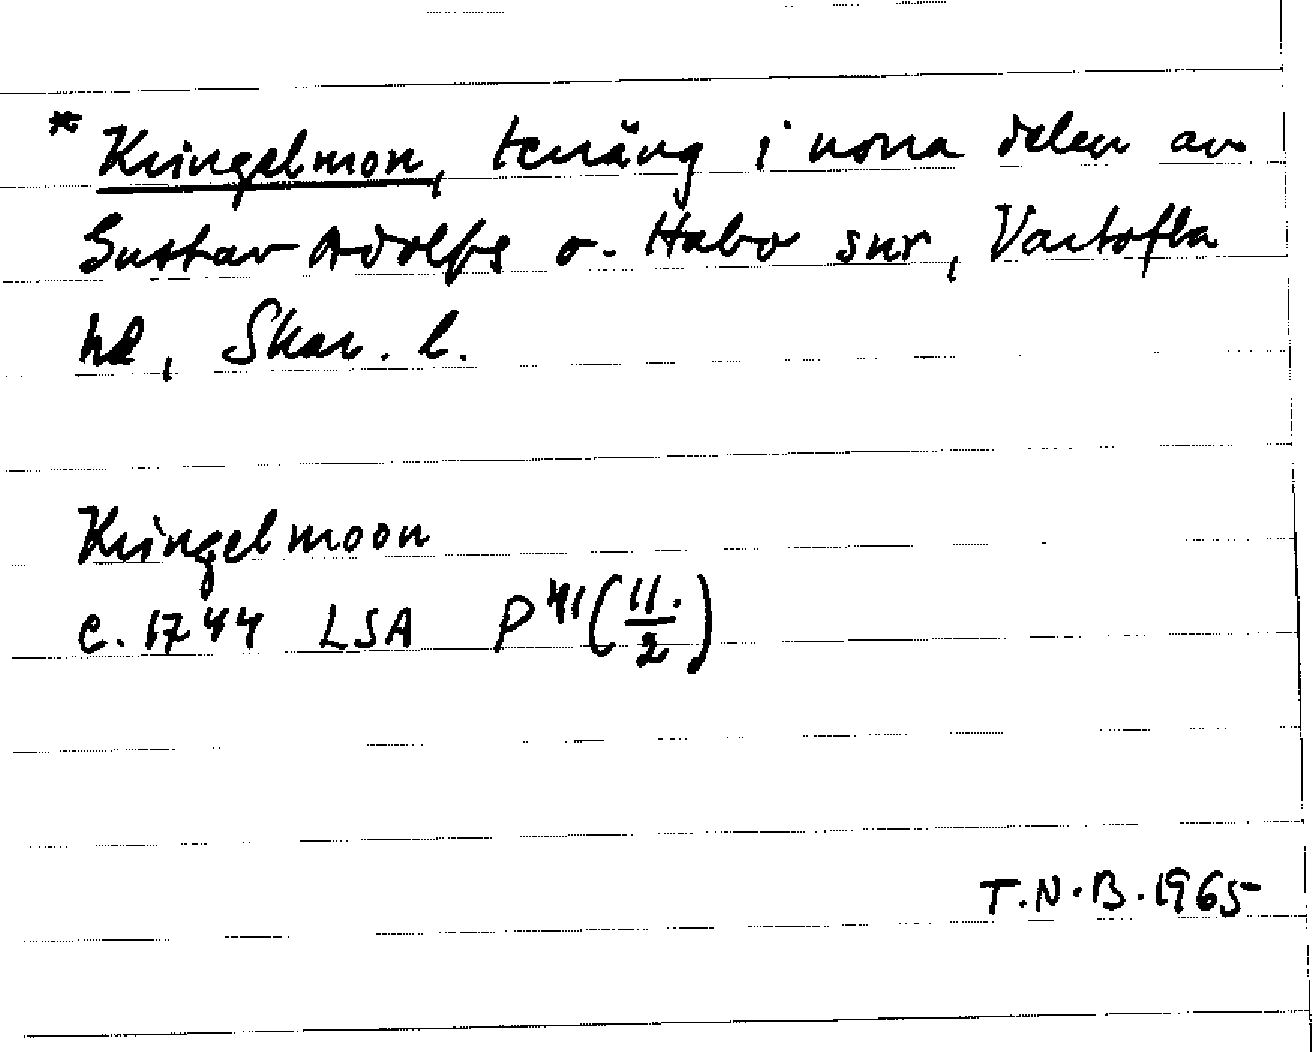 * Kringelmon, terräng i norra delen av
Gustav Adolfs o. Habo snr, Vartofta
hd, Skar. l.
Kringelmoon
c. 1744 LSA P 41 (11./2)
T.N.B. 1965